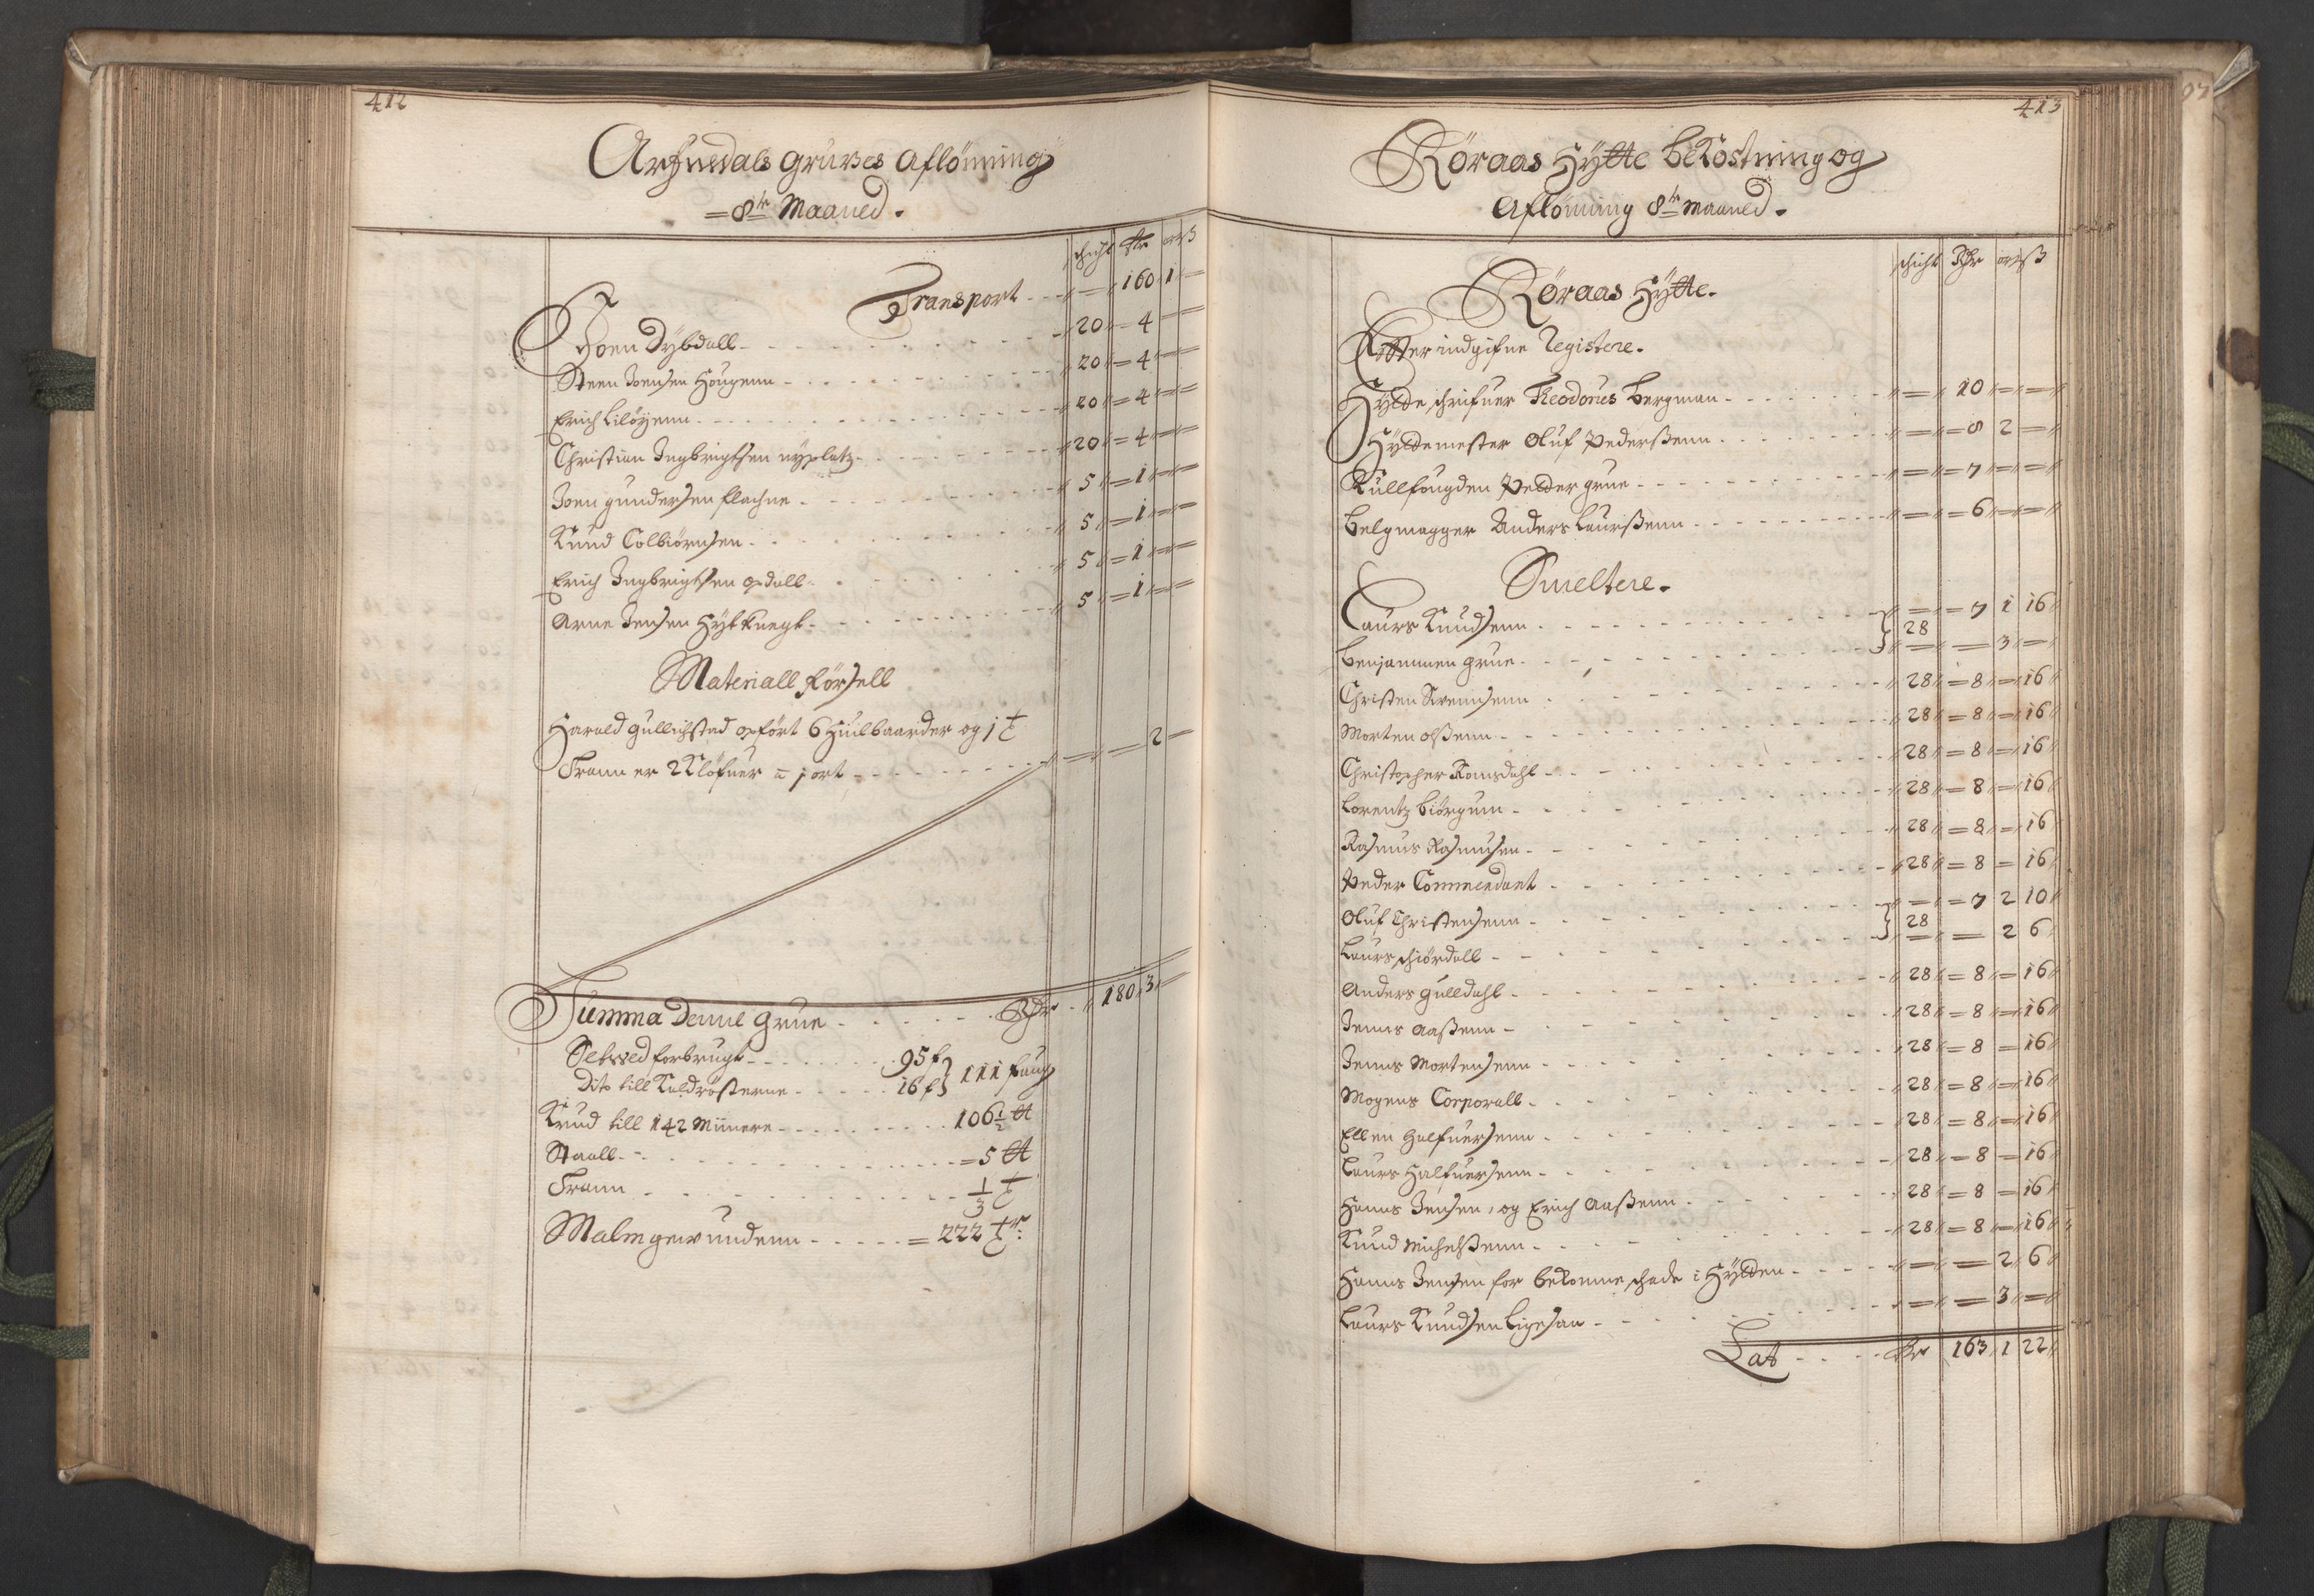 412
Arfuedals Gruves Aflönning
= 8tr Maaned.
schicht Rdr ort ß
Transport - - = 160 1 =
Joen Dybdall - 20 = 4 =
Steen Joensen Hougenn - 20 = 4 =
Erich Liløyenn - 20 = 4 =
Christian Ingbrigtsen nyplatz - 20 = 4 =
Joen gundersen flachne - 5 = 1 =
Knud Colbiørnsen - 5 = 1 =
Erich Ingbrigtsen opdall - 5 = 1 =
Arne Jensen Hytknegt - 5 = 1 =
Materiall förssell
Harald gullichstad opfört 6 Huilbaarder og 1 t
Trann er 2 Klöfuer a 1 ort - = = 2 =
Summa Denne Grue - Rdr 180 3 =
Setved forbrugt - 95 f } 111 faug
Dito till Kaldrösterne - 16 f }
Krud till 142 Miinere - 106 1/2 tt
Staall - = 5 tt
Trann - 1/3 t
Malm gewundenn - = 222 tr
413
Röraas Hytte beKostning og
Aflönning 8tr Maaned.
schicht Rdr ort ß
Röraas Hytte.
Effter indgifne Registere.
Hytteschrifuer Theodorus Bergman - = 10 = =
Hyttemester Oluf Pederßenn - = 8 2 =
Kullfougden Peder grue - = 7 = =
Belgmagger Anders Laurßenn - = 6 = =
Smeltere.
Laurs Knudsenn - } 28 = 7 1 16
Benjammen grue - } = = 3 =
Christen Svendsenn - 28 = 8 = 16
Morten olßenn - 28 = 8 = 16
Christopher Romsdahl - 28 = 8 = 16
Lorentz biörgum - 28 = 8 = 16
Rasmus Rasmusen - 28 = 8 = 16
Peder Commendant - 28 = 8 = 16
Oluf Christensenn - } 28 = 7 2 10
Laurs schiördall - } = = 2 6
Anders gulldahl - 28 = 8 = 16
Jenns Aaßenn - 28 = 8 = 16
Jenns Mortensenn - 28 = 8 = 16
Mogens Corporall - 28 = 8 = 16
Ellen Halfuersenn - 28 = 8 = 16
Laurs Halfuersenn - 28 = 8 = 16
Hanns Jensen, og Erich Aaßenn - 28 = 8 = 16
Knud Michelßenn - 28 = 8 = 16
Hanns Jensen for bekomne schade i Hytten - = = 2 6
Laurs Knudsen Ligesaa - = = 3 =
Lat - Rdr 163 1 22